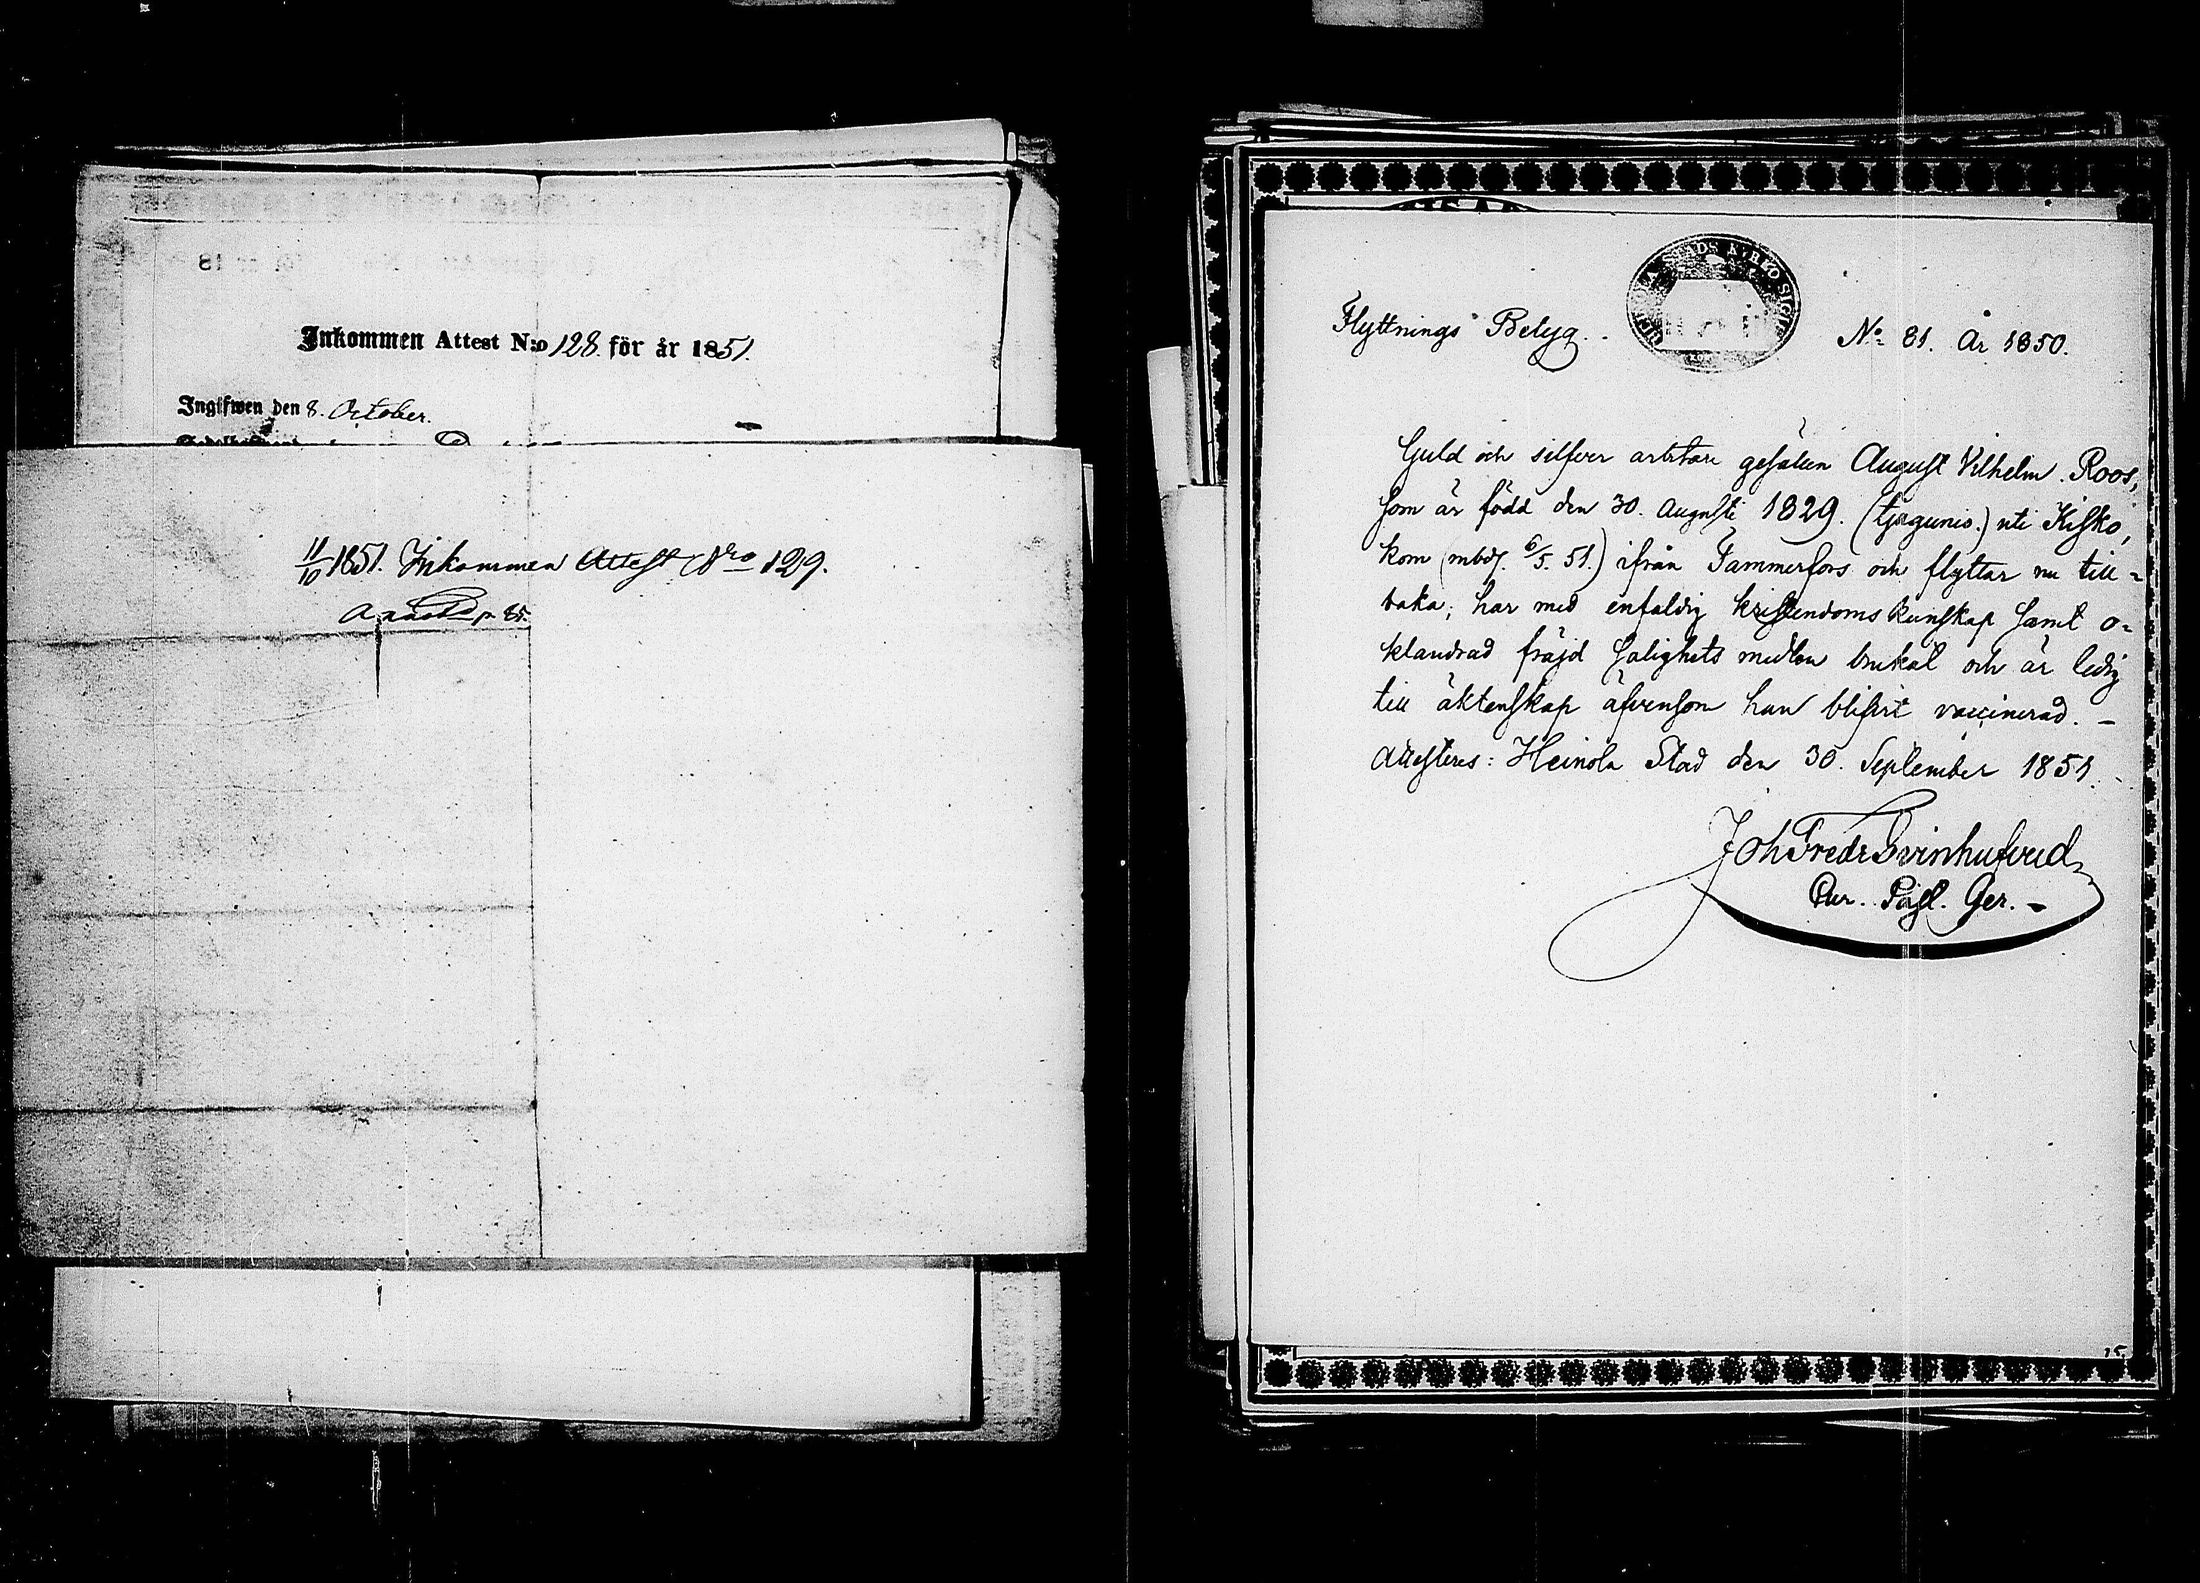 Inkommen Attest N:o 128. för år 1851.
Ingifwen den 8. October.
11/10 1851. Inkommen Attest Nro 129.
p. 85.
Flyttnings Betyg.
No 81. År 1850.
Guld och silfver arbetare gesälen August Vilhelm Roos,
som är född den 30. Augusti 1829. (tjugunio.) uti Kisko,
kom (mbd. 6/5. 51.) ifrån Tammerfors och flyttar nu till-
baka; har med enfaldig kristendoms kunskap samt o-
klandrad fräjd salighets medlen brukat och är ledig
till äktenskap äfvensom han blifvit vaccinerad. –
Attesteres: Heinola Stad den 30. September 1851.
Joh Fredr Svinhufvud
Past. Ger. –